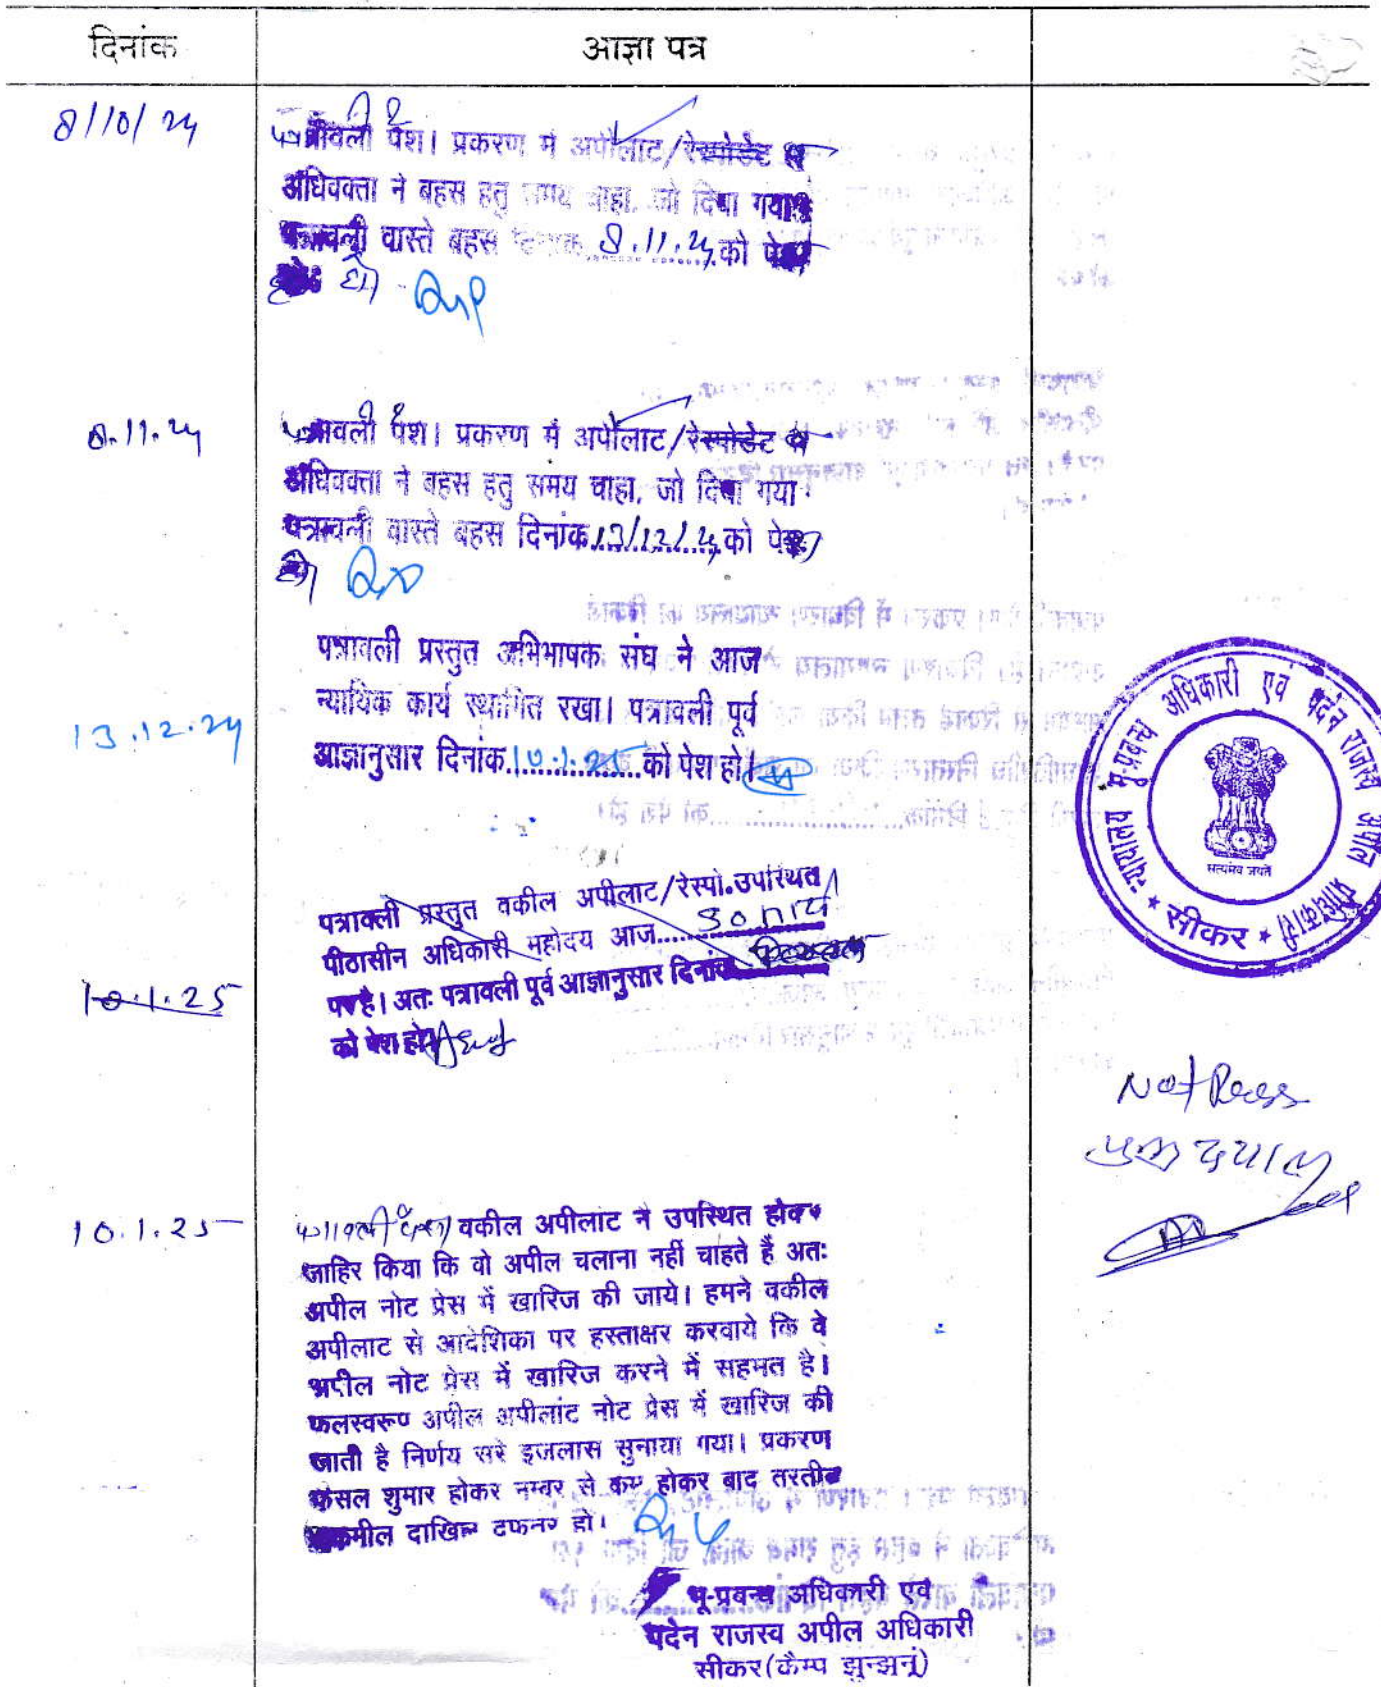 दिनांक
आज्ञा पत्र
8/10/24
पत्रावली पेश। प्रकरण में अपीलाट/रेस्पोडेट
अधिवक्ता ने बहस हतु समय चाहा, जो दिया गया
पत्रावली वास्ते बहस दिनांक 8.11.24 को पेश
हो
8.11.24
पत्रावली पेश। प्रकरण में अपीलाट/रेस्पोडेट के
अधिवक्ता ने बहस हतु समय चाहा, जो दिया गया
पत्रावली वास्ते बहस दिनांक 13/12/24 को पेश
हो
पत्रावली प्रस्तुत अभिभाषक संघ ने आज
न्यायिक कार्य स्थगित रखा। पत्रावली पूर्व
13.12.24
आज्ञानुसार दिनांक 10.1.25 को पेश हो।
न्यायालय भू-प्रबन्ध अधिकारी एवं पदेन राजस्व अपील प्राधिकारी
सत्यमेव जयते
* सीकर *
पत्रावली प्रस्तुत वकील अपीलाट/रेस्पो.उपस्थित
पीठासीन अधिकारी महोदय आज
10.1.25
पर है। अतः पत्रावली पूर्व आज्ञानुसार दिनांक
को पेश हो
Not Press
दयाल
10.1.25
पत्रावली पेश। वकील अपीलाट ने उपस्थित होकर
जाहिर किया कि वो अपील चलाना नहीं चाहते है अतः
अपील नोट प्रेस में खारिज की जाये। हमने वकील
अपीलाट से आदेशिका पर हस्ताक्षर करवाये कि वे
अपील नोट प्रेस में खारिज करने में सहमत है।
फलस्वरूप अपील अपीलांट नोट प्रेस में खारिज की
जाती है निर्णय सरे इजलास सुनाया गया। प्रकरण
फैसल शुमार होकर नम्बर से कम होकर बाद तरतीब
तकमील दाखिल दफ्तर हो।
भू-प्रबन्ध अधिकारी एवं
पदेन राजस्व अपील अधिकारी
सीकर(कैम्प झुन्झनूं)